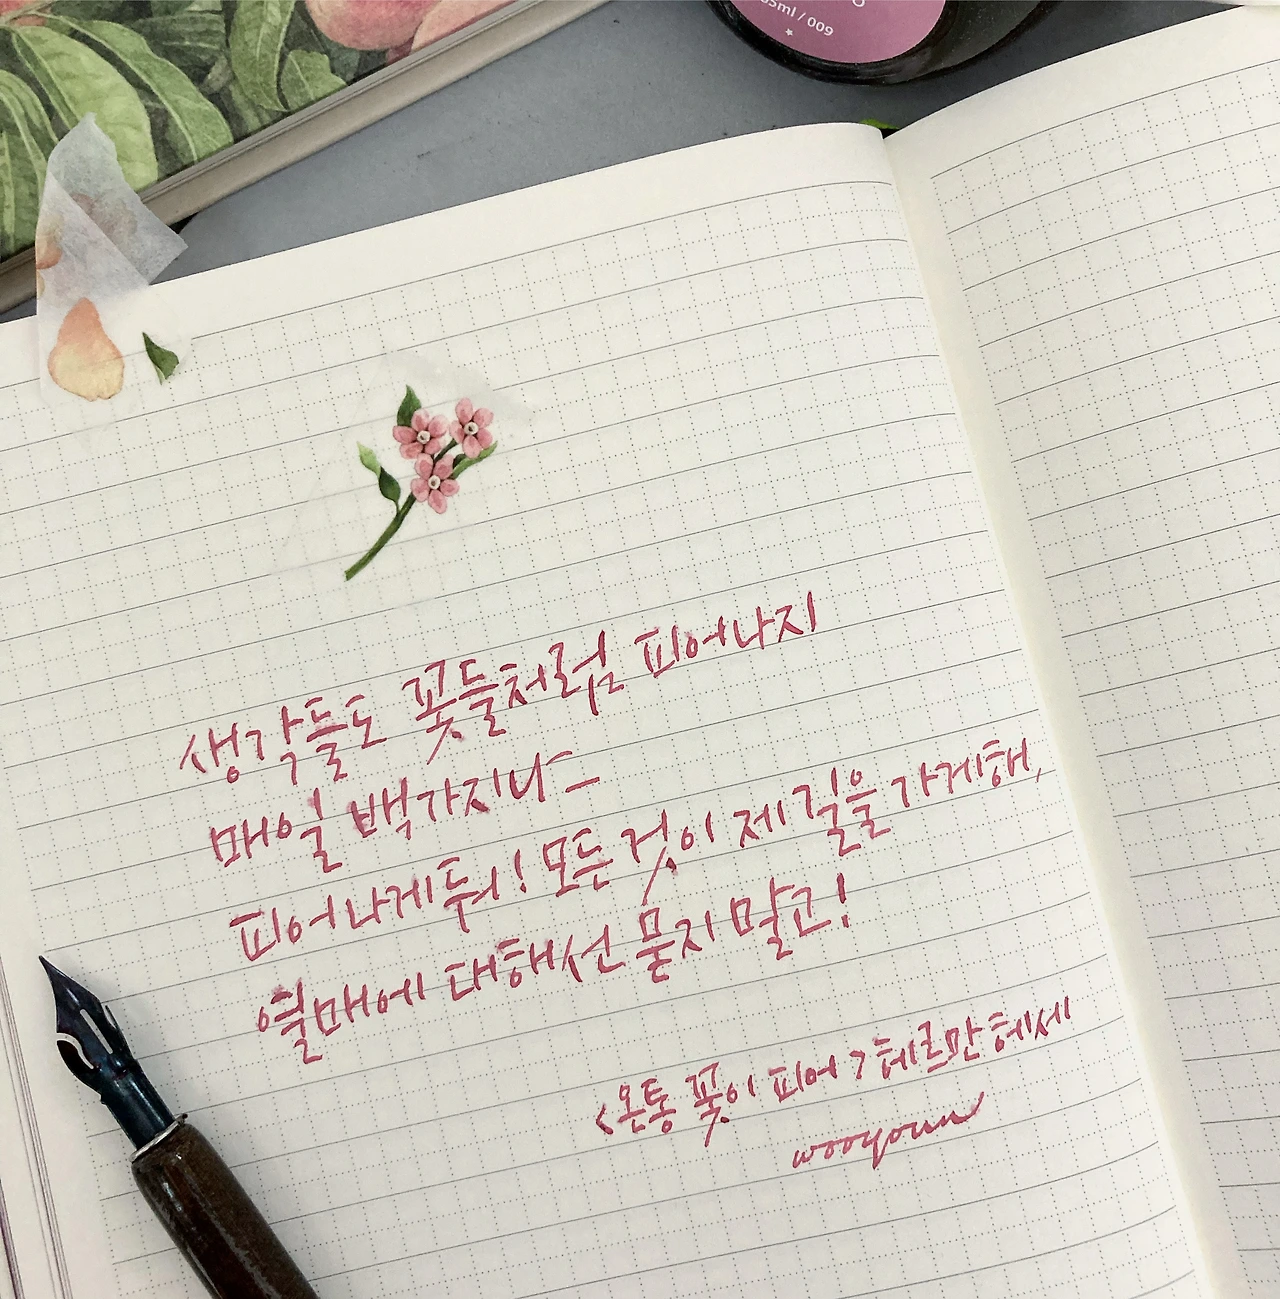 35ml / 009
생각들도 꽃들처럼 피어나지
매일 백가지나 -
피어나게 둬! 모든 것이 제 길을 가게 해,
열매에 대해선 묻지 말고!
<온통 꽃이 피어> 헤르만 헤세
wooyoun